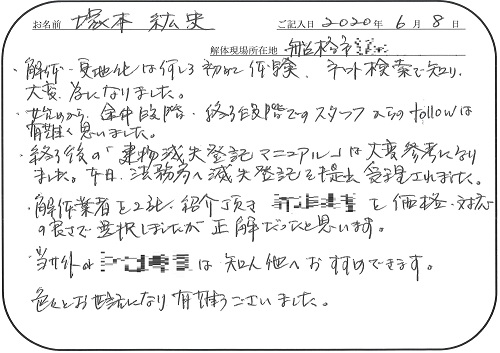 お名前 塚本 紘史 ご記入日 2020年 6月 8日
解体現場所在地 船橋市
・解体・更地化は何しろ初めて体験、ネット検索で知り、
大変、為になりました。
・始めから、途中段階・終了段階でのスタッフからのfollowは
有難く思いました。
・終了後の「建物滅失登記マニュアル」は大変参考になり
ました。本日、法務局へ滅失登記を提出受理されました。
・解体業者を2社、紹介頂き を価格・対応
の良さで選択しましたが正解だったと思います。
・当サイトの は知人他へおすすめできます。
色々とお世話になり有難うございました。